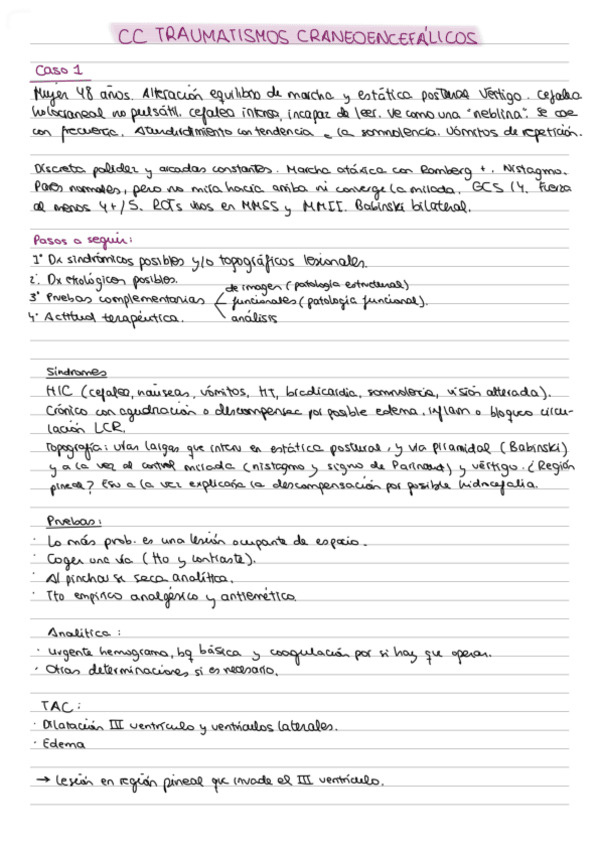 CC TRAUMATISMOS CRANEOENCEFÁLICOS
Caso 1
Mujer 48 años. Alteración equilibrio de marcha y estática postural. Vértigo. Cefalea
holocraneal no pulsátil. cefalea intensa, incapaz de leer. Ve como una "neblina". Se cae
con frecuencia. Aturdimiento con tendencia a la somnolencia. Vómitos de repetición.
Discreta palidez y arcadas constantes. Marcha atáxica con Romberg +. Nistagmo.
Pares normales, pero no mira hacia arriba ni converge la mirada. GCS 14. Fuerza
al menos 4+/5. ROTs vivos en MMSS y MMII. Babinski bilateral.
Pasos a seguir:
1º Dx sindrómicos posibles y/o topográficos lesionales.
2º Dx etiológicos posibles.
3º Pruebas complementarias
de imagen (patología estructural)
funcionales (patología funcional).
análisis
4º Actitud terapéutica.
Síndromes
HIC (cefalea, náuseas, vómitos, HT, bradicardia, somnolencia, visión alterada).
Crónico con agudización o descompensac por posible edema, inflam o bloqueo circu-
lación LCR.
Topografía: vías largas que interv en estática postural, y vía piramidal (Babinski)
y a la vez al control mirada (nistagmo y signo de Parinaud) y vértigo. ¿Región
pineal? Eso a la vez explicaría la descompensación por posible hidrocefalia.
Pruebas:
· Lo más prob. es una lesión ocupante de espacio.
· Coger una vía (tto y contraste).
· Al pinchar se saca analítica.
· Tto empírico analgésico y antiemético.
Analítica:
· Urgente hemograma, bq básica y coagulación por si hay que operar.
· Otras determinaciones si es necesario.
TAC:
· Dilatación III ventrículo y ventrículos laterales.
· Edema
→ Lesión en región pineal que invade el III ventrículo.